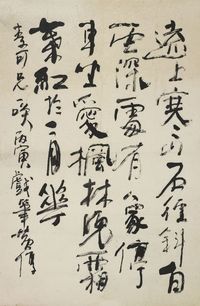 遠上寒山石徑斜白
雲深處有人家停
車坐愛楓林晚霜
葉紅於二月花
李可兄咲丙寅戲筆